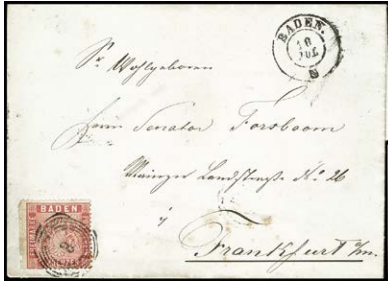 BADEN.
18
JUL
Sr. Wohlgeboren
Herrn Senator Forsboom
Mainzer Landstraße No 26
Frankfurt a/m.
BADEN